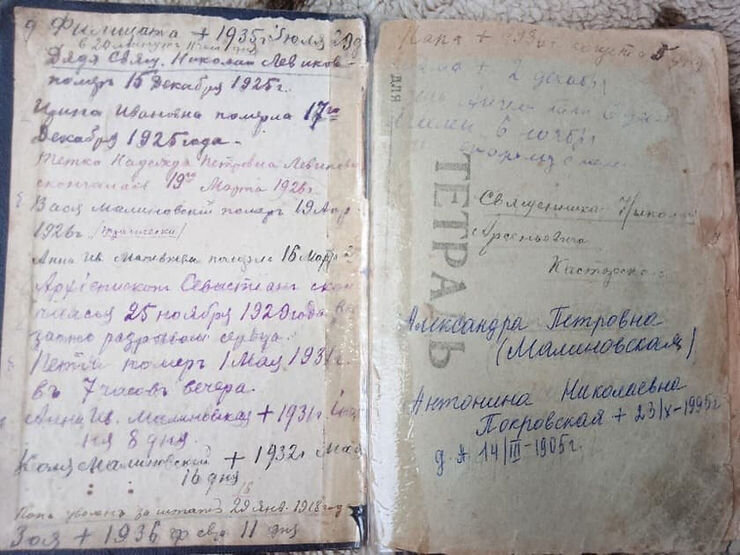 Филицата + 1935 г. Июля 29 д
в 20 минут
Дядя Свящ. Николай Левиков-
померъ 15 Декабря 1925 г.
Ирина Ивановна померла 17го
Декабря 1925 года.-
Тетка Надежда Петровна Левикова
скончалась 19го Марта 1926 г.
Вася Малиновский померъ 19 Апр
1926 г.
Анна Ив. померла 15 Март
Архіепископъ Севастіанъ скон
чался 25 ноября 1929 года вне
запно разрывом сердца.
Петя померъ 1 Мая 1931 г.
въ 7 часовъ вечера.
Анна Ив. Малиновская + 1931 г.
ня 8 дня.
Коля Малиновский + 1932 г. Мая
16 дня
Папа уволенъ за штатъ 29 янв. 1918 год
Зоя + 1936 ф 11 дня
Папа + августа 5
+ 2 декабр
6 ноябр
ДЛЯ
ТЕТРАДЬ
Священника Николая
Арсеньевича
Касторского
Александра Петровна
(Малиновская)
Антонина Николаевна
Покровская + 23/X-1995 г
д. А. 14/III-1905 г.